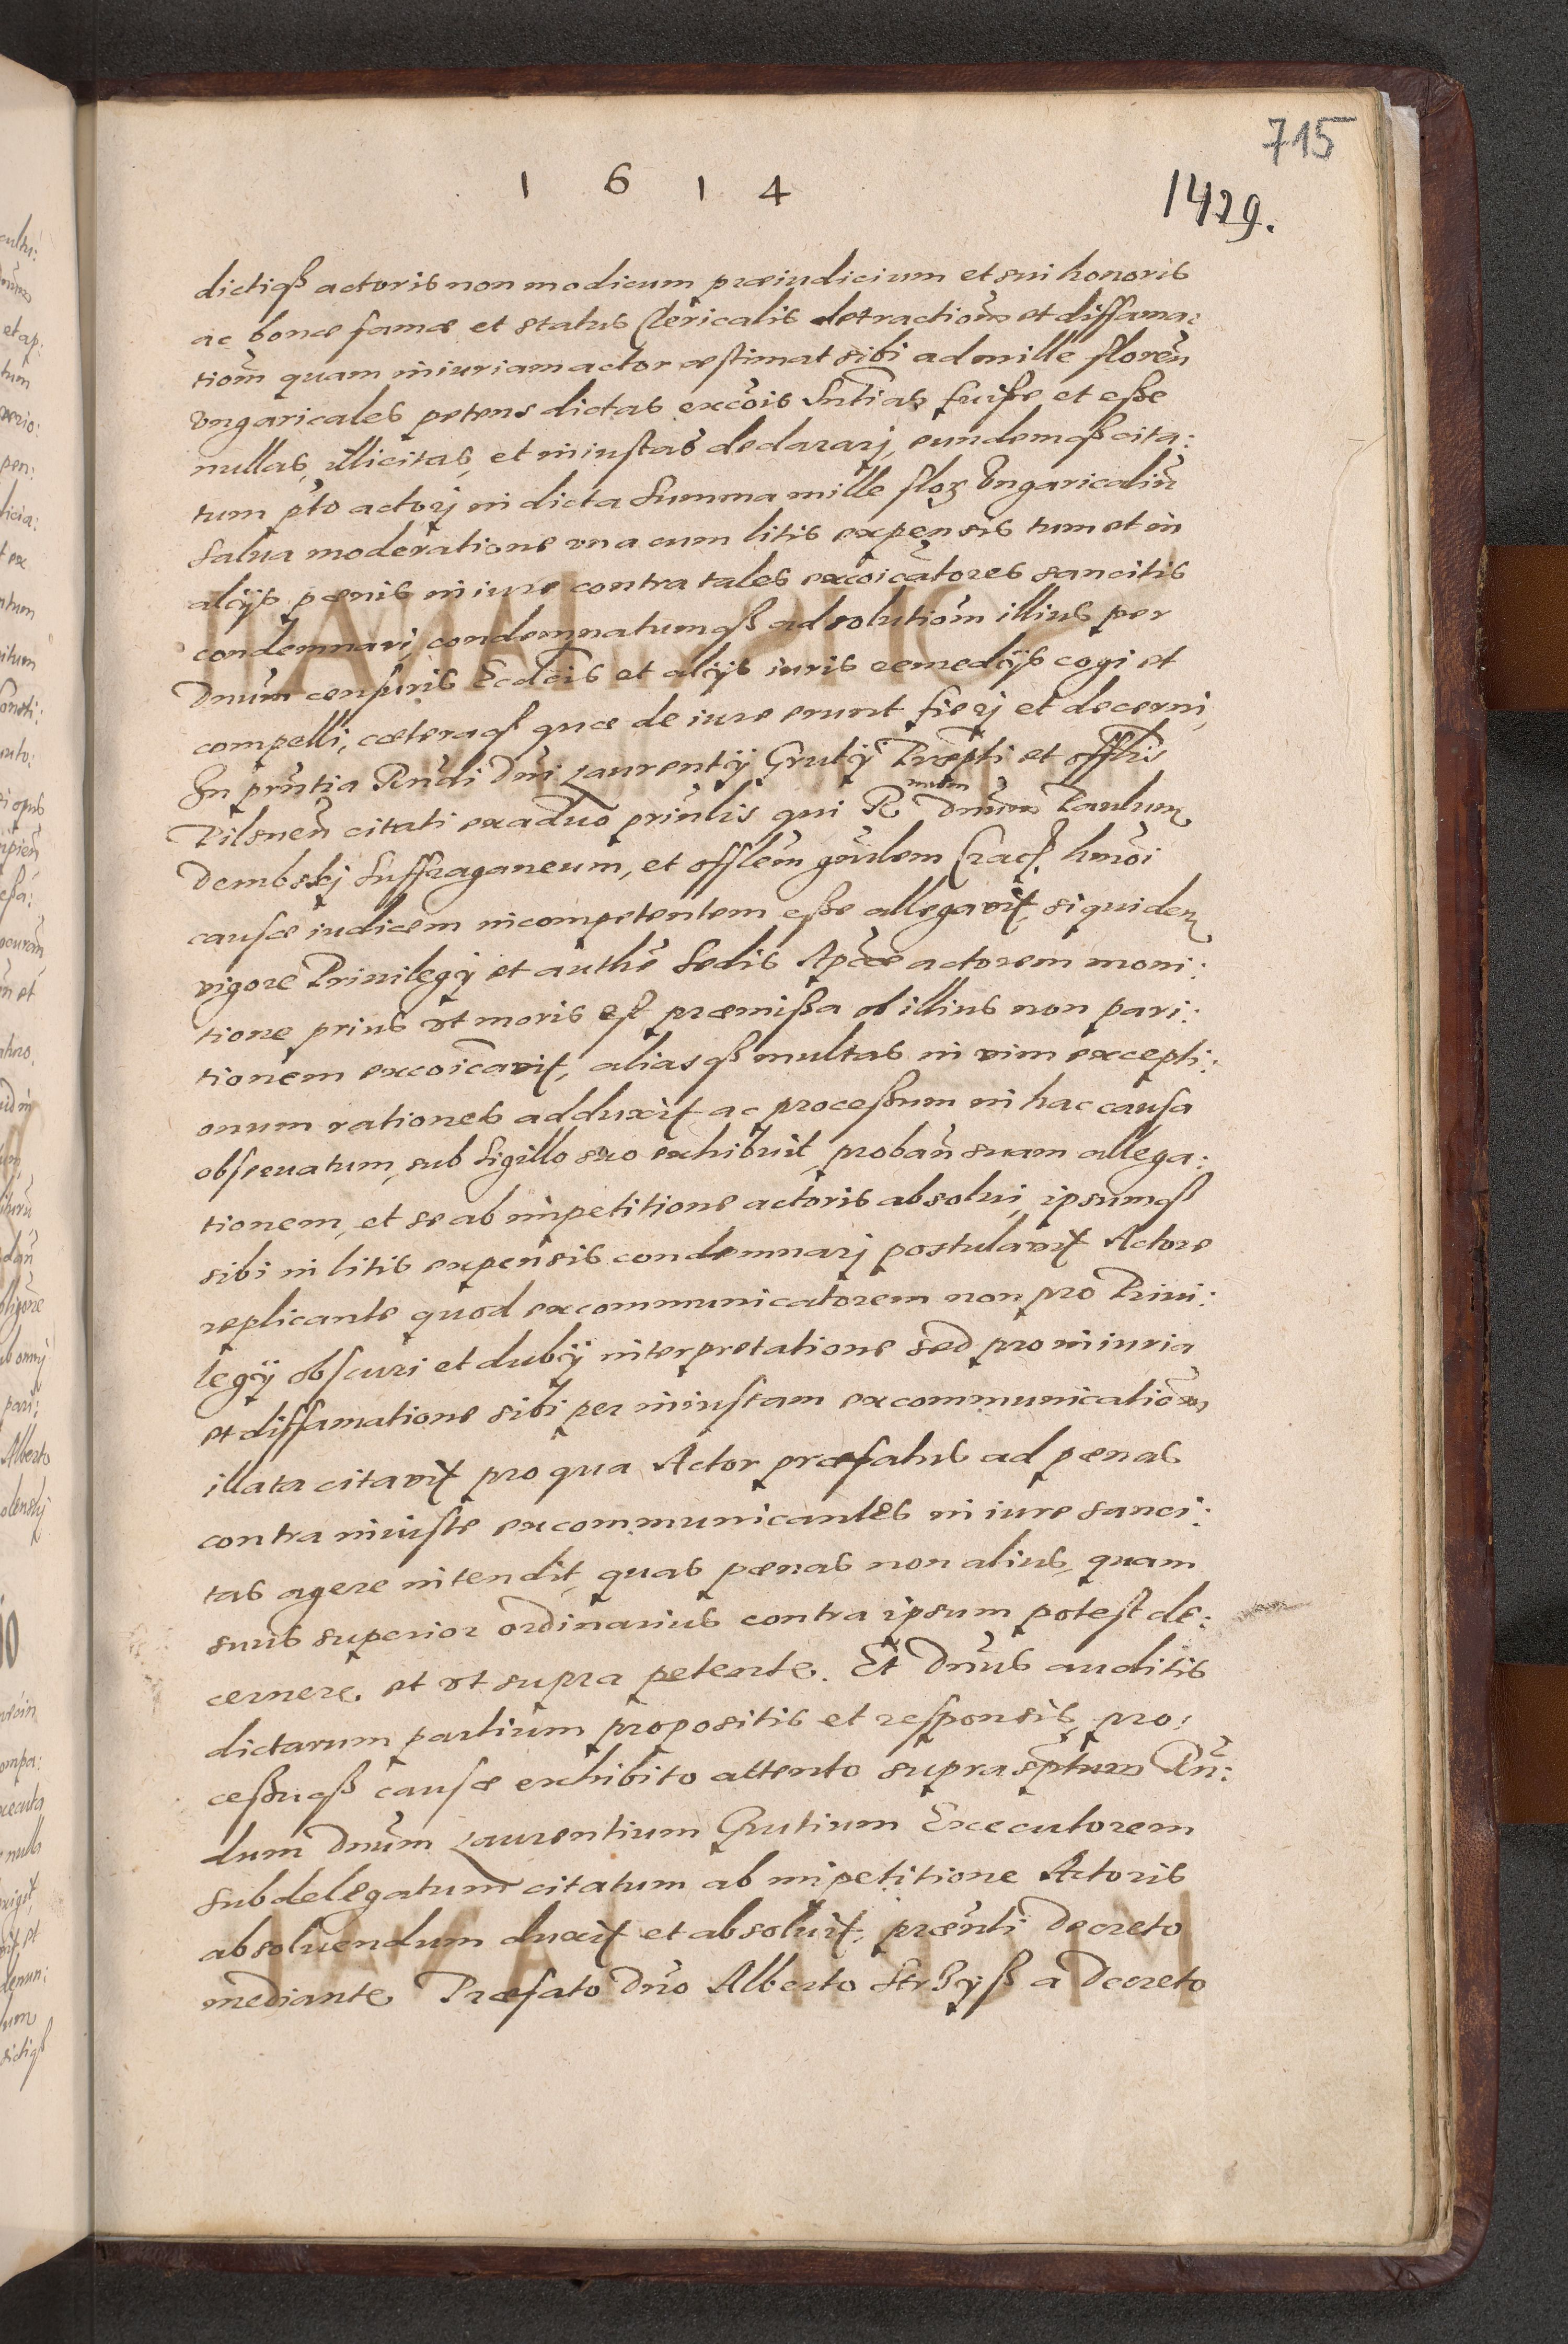 715
1 6 1 4
1429.
dictiqß actoris non modicum præiudicium et sui honoris
ac bonæ famæ et status Clericalis detractionē et diffama:
tionē quam iniuriam actor æstimat sibi ad mille florēn
Vngaricales petens dictas excōis sn̄tias fuiße et eße
nullas, illicitas, et iniustas declararj, eundemqß cita:
tum pto actorj in dicta summa mille flor Vngaricaliū
salua moderatione vna cum litis expensis tum et in
alijs pænis in iure contra tales excōicatores sancitis
condemnari condemnatumqß ad solutionē illius per
Dnūm censuris Eccl̄cis et alijs iuris remedijs cogi et
compelli, cæteraqß quæ de iure erunt fierj et decerni,
In prn̄tia Rndi Dn̄i Laurentij Grutij Præpti et offlis
Pilsnen̄ citati ex aduo prīnlis qui R mum Dn̄um Paulum
Dembskj Suffraganeum, et offlēm gn̄rlem Cracß hm̄oi
causæ iudicem incompetentem eße allegavit, siquidem
vigore Priuilegij et authē Sedis Apc̄æ actorem moni:
tione prius vt moris est præmißa ob illius non pari:
tionem excōicavit, aliasqß multas in vim excepti:
onum rationes adduxit ac proceßum in hac causa
obseruatum, sub sigillo suo exhibuit, proban̄ suam allega:
tionem, et se ab impetitione actoris absolui, ipsumqß
sibi in litis expensis condemnarj postulavit Actore
replicante quod excommunicatorem non pro Priui:
legij obscuri et dubij interpretatione sed pro iniuria
et diffamatione sibi per iniustam excommunicationē
illata citavit pro qua Actor præfatus ad pænas
contra iniuste excommunicantes in iure sanci:
tas agere intendit, quas pænas non alius, quam
suus superior ordinarius contra ipsum potest de:
cernere, et vt supra petente. Et Dn̄us auditis
dictarum partium propositis et responsis, pro:
ceßuqß causæ exhibito attento supra sptum Rn̄:
dum Dnūm Laurentium Grutium Executorem
subdelegatum citatum ab impetitione Actoris
absoluendum duxit et absoluit, præn̄ti Decreto
mediante, Præfato Dn̄o Alberto a Decreto